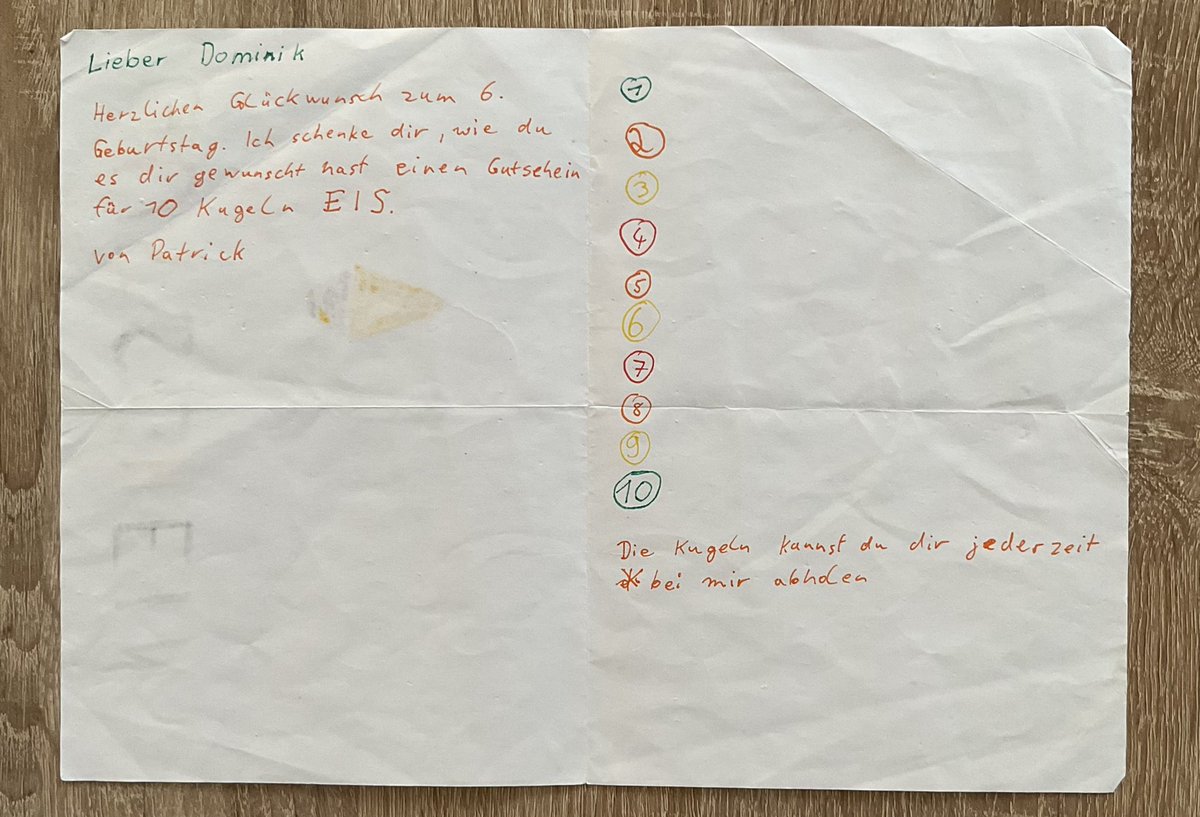 Lieber Dominik
Herzlichen Glückwunsch zum 6.
Geburtstag. Ich schenke dir, wie du
es dir gewunscht hast einen Gutschein
für 10 Kugeln EIS.
von Patrick
1
2
3
4
5
6
7
8
9
10
Die Kugeln kannst du dir jederzeit
bei mir abholen